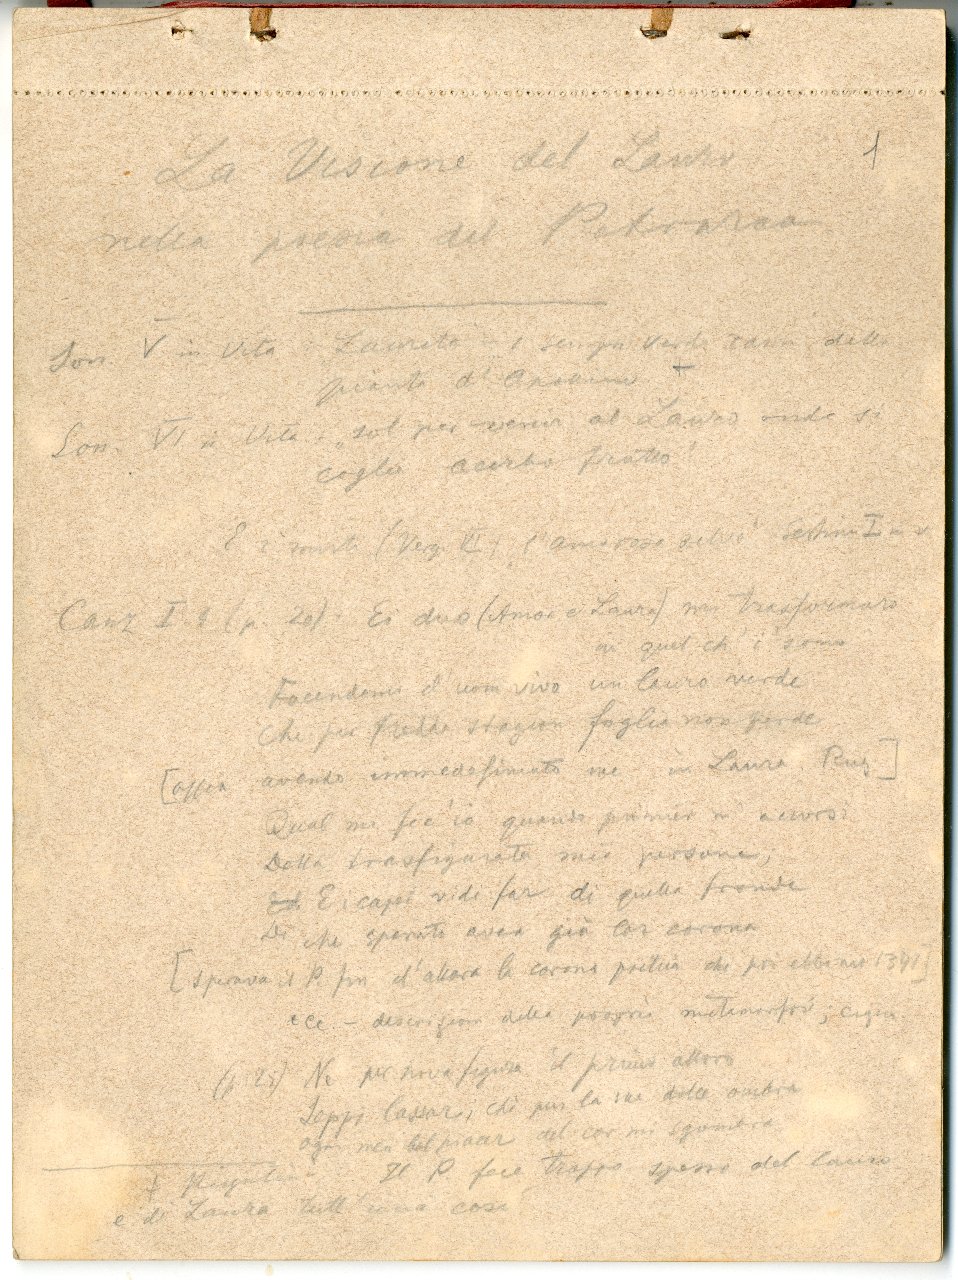 1
La Visione del Lauro
nella poesia del Petrarca
Son. V in Vita - Laureta - i sempre verdi rami della
pianta d'Apolline +
Son. VI in Vita - "sol per venir al Lauro onde si
coglie acerbo frutto"
E i mirti (Verg. VI) l'amorosa selva Sestina I in v.
Canz I. (p. 20) - Ei duo (Amor e Laura) mi trasformaro
in quel ch'i' sono
Facendomi d'uom vivo un lauro verde
Che per fredda stagion foglia non perde
[avendo immedesimato me in Laura.]
Qual mi fec'io quando primier m'accorsi
Della trasfigurata mia persona,
E i capei vidi far di quella fronde
Di che sperato avea già lor corona
[sperava il P. fin d'allora la corona poetica che poi ebbe nel 1341]
ecc. - descrizion della propria metamorfosi,
(p. 25) Nè per nova figura il primo alloro
Seppi lassar, chè pur la sua dolce ombra
ogni men bel piacer del cor mi sgombra
+ Il P. fece troppo spesso del lauro
e di Laura tutt'una cosa